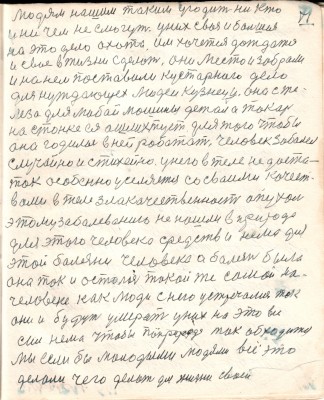 Людям нашим таким угодит ни кто
и ни чем не смогут. у них своя и большая
на это дело охота, им хочется дождать
и свое в жизни сделать. они место избрали
и на нем поставили кустарнаго дело
для нуждающех людей кузнецу, оно с же-
леза для любой машины детал а токар
на станке ея
она годилась в ней работат. Человек заболел
случайно и стихейно. у него в теле не доста-
ток особенно уселяется со своими качест-
вами в теле злокачественност опухол
этому заболеванию не нашли в природе
для этого человека средств и нема для
этой болезни человека а болезн была
она так и осталася такой же самой на
человеке как люди с нею устречалис так
они и будут умерат у них на это всё
сил нема чтобы природе так обходитис
мы если бы молодыми людями всё это
делали чего делают для жизни своей